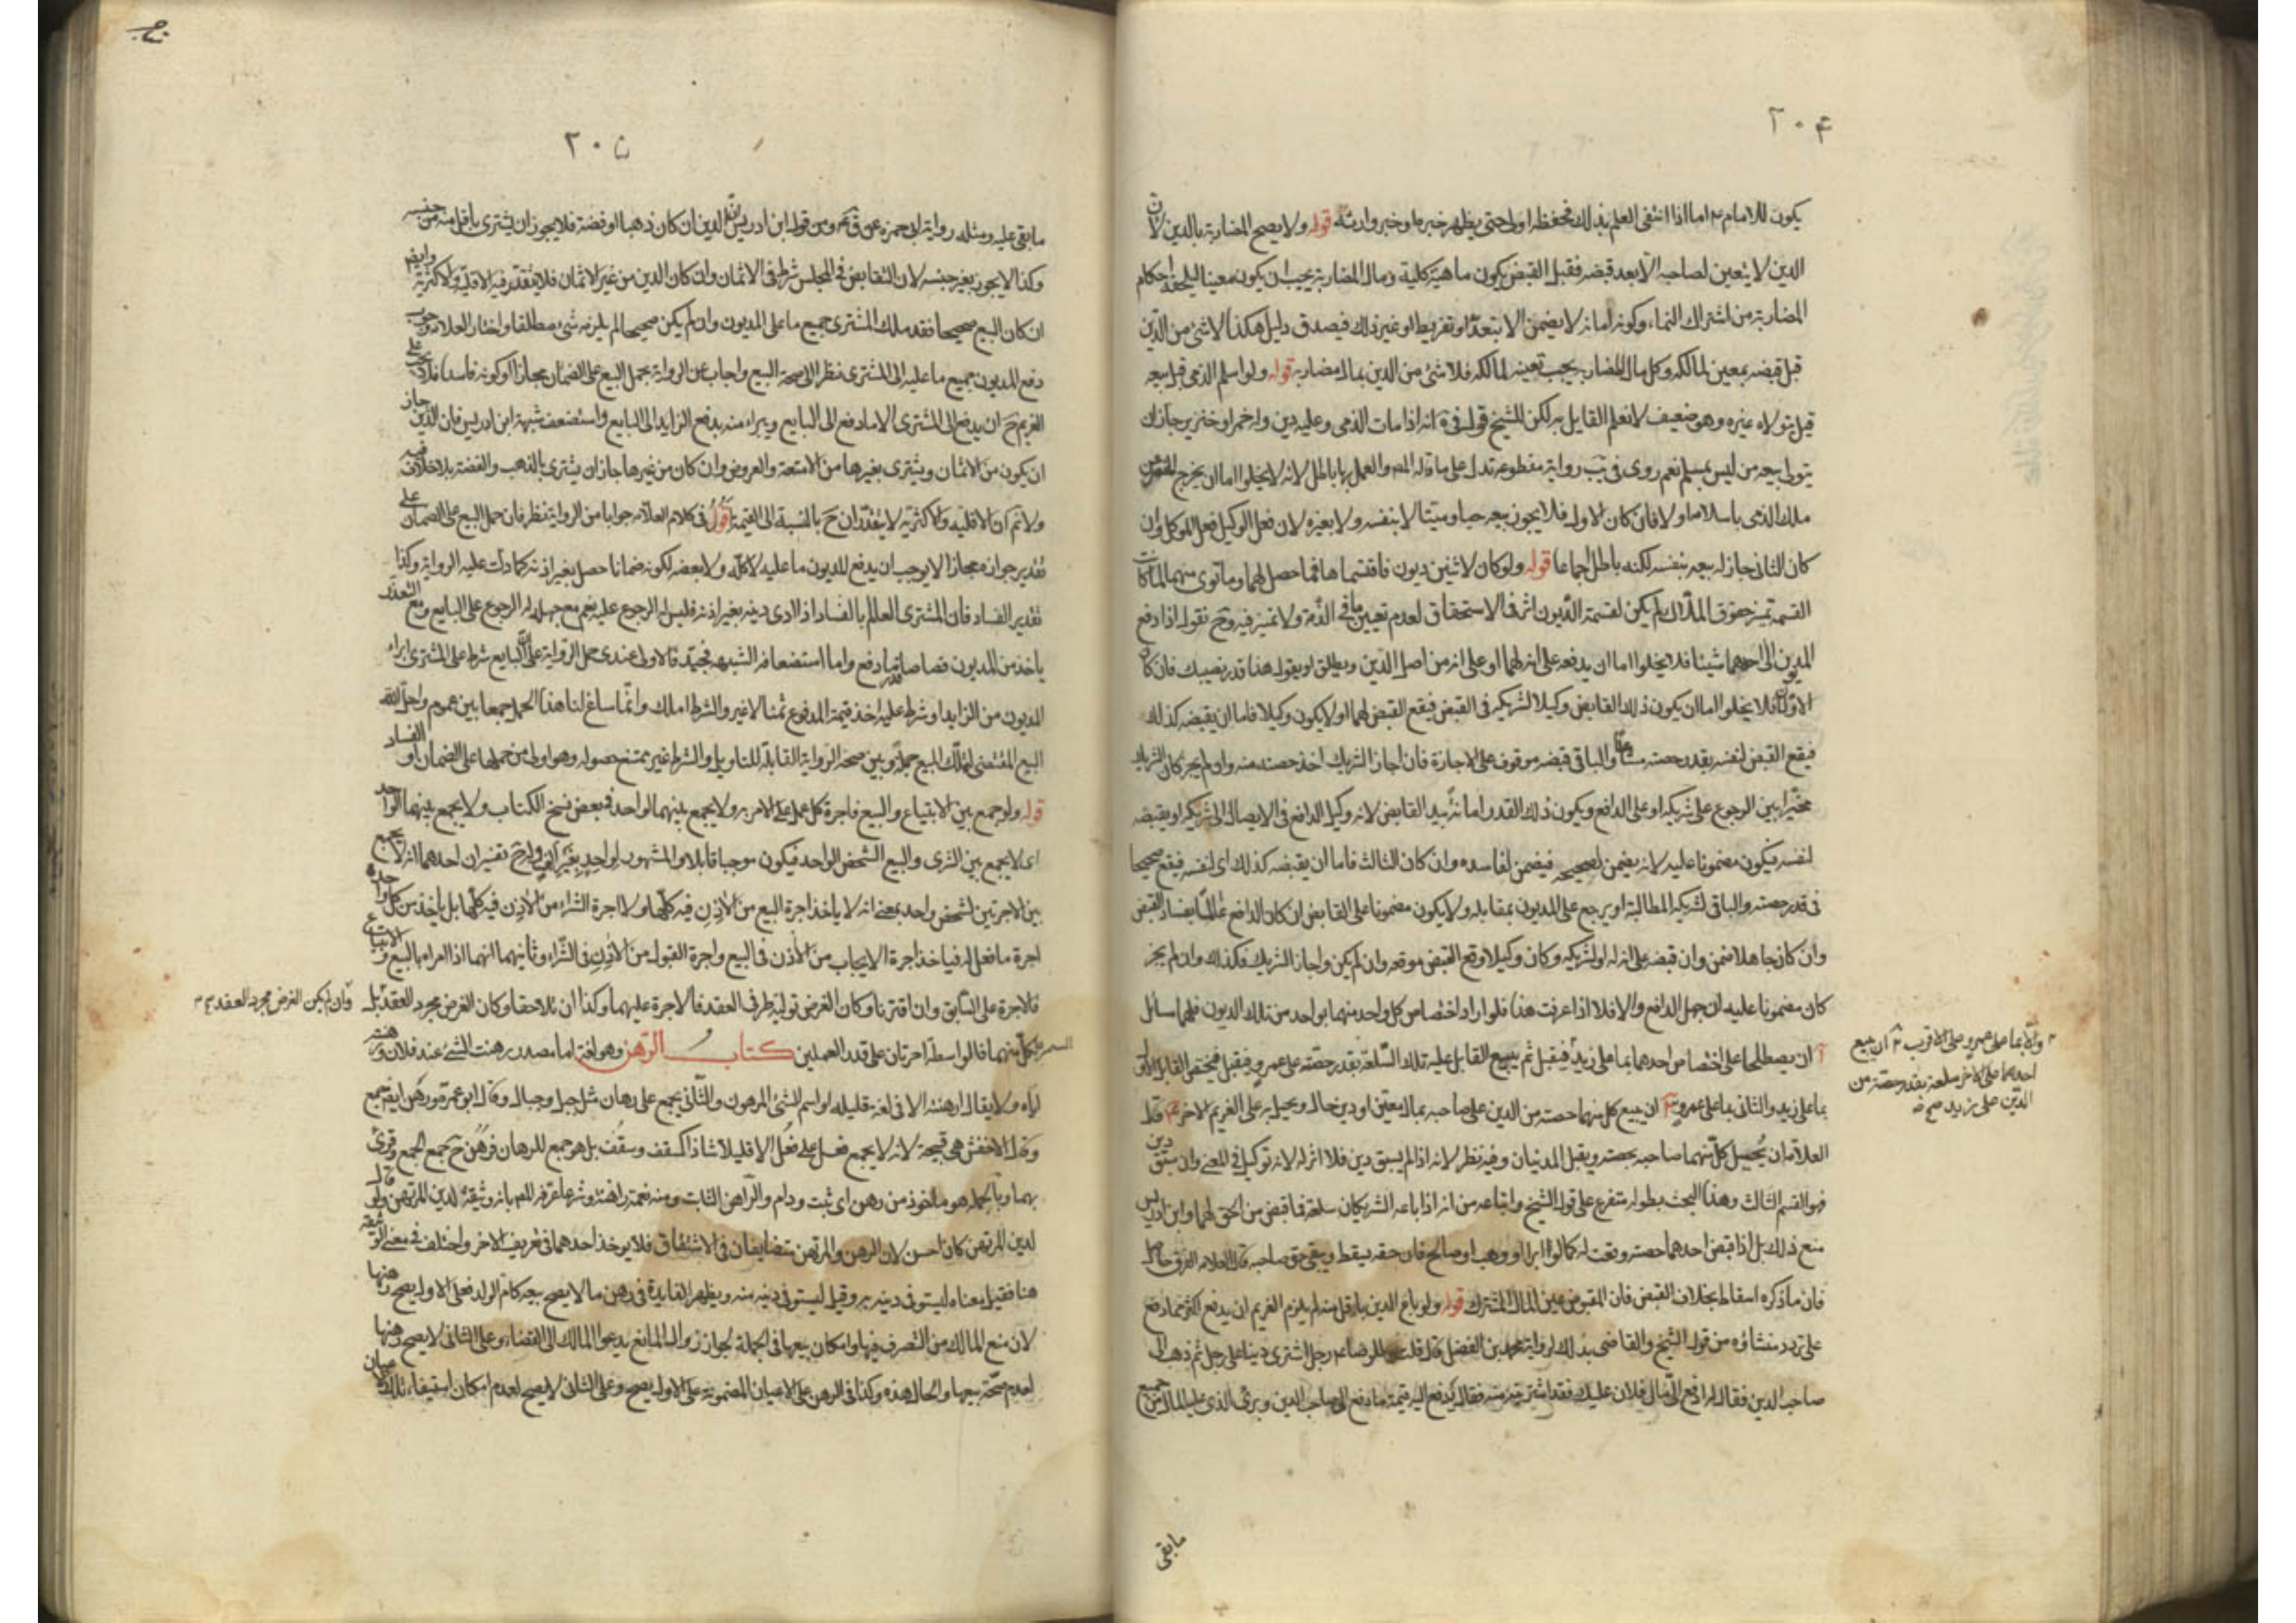 ٢٠۴
يكون للامام ع اما اذا انتفى العلم بذلك فحفظه اولى حتى يظهر خبره او خبر وارثه قوله ولا يصح المضاربة بالدين لان
الدين لا يتعين لصاحبه الا بعد قبضه فقبل القبض يكون ماهية كلية ومال المضاربة يجب ان يكون معينا ليلحقه احكام
المضاربة من اشتراك النماء وكونه امانة لا يضمن الا بتعد او تفريط او غير ذلك فيصدق دليل هكذا لا شئ من الدين
قبل قبضه بمعين لمالكه وكل مال المضاربة يجب تعينه لمالكه فلا شئ من الدين بمال مضاربة قوله ولو اسلم الذمى قبل بيعه
قيل يتولاه غيره وهو ضعيف لا نعلم القايل به لكن للشيخ قول فى انه اذا مات الذمى وعليه دين وله خمر او خنزير جاز ان
يتولى بيعه من ليس بمسلم نعم روى فى يب رواية مقطوعة تدل على ما قاله المص والعمل بها باطل لانه لا يخلوا اما ان يخرج عن
ملك الذمى باسلامه او لا فان كان الاول فلا يجوز بيعه حيا وميتا لا بنفسه ولا بغيره لان فعل الوكيل فعل الموكل وان
كان الثانى جاز له بيعه بنفسه لكنه باطل اجماعا قوله ولو كان لاثنين ديون فاقتسماها فما حصل لهما وما توى منهما لما كانت
القسمة تميز حقوق الملاك لم يكن لقسمة الديون اثر فى الاستحقاق لعدم تعيين ما فى الذمة ولا تميز فيه وح نقول اذا دفع
المديون الى احدهما شيئا فلا يخلوا اما ان يدفعه على انه لهما او على انه من اصل الدين ويطلق او يقول هذا قدر نصيبك فان كان
الاولان فلا يخلوا اما ان يكون ذلك القابض وكيلا لشريكه فى القبض فيقع القبض لهما او لا يكون وكيلا فاما ان يقبضه كذلك
فيقع القبض لنفسه بقدر حصته والباقى قبضه موقوف على الاجازة فان اجاز الشريك اخذ حصته منه وان لم يجز كان الشريك
مخيرا بين الرجوع على شريكه او على الدافع ويكون ذلك القدر امانة بيد القابض لانه وكيل الدافع فى الايصال الى شريكه او يقبضه
لنفسه فيكون مضمونا عليه لانه يضمن لصحيحه فيضمن لفاسده وان كان الثالث فاما ان يقبضه كذلك اى لنفسه فيقع صحيحا
فى قدر حصته والباقى لشريكه المطالبة او يرجع على المديون بمقابله ولا يكون مضمونا على القابض ان كان الدافع عالما بفساد القبض
وان كان جاهلا ضمن وان قبضه على انه له او لشريكه وكان وكيلا وقع القبض موقعه وان لم يكن واجاز الشريك فكذلك وان لم يجز
كان مضمونا عليه ان جهل الدافع والا فلا اذا عرفت هذا فلو اراد اختصاص كل واحد منهما بواحد من تلك الديون فلهما مسائل
آ ان يصطلحا على اختصاص احدهما بما على زيد فيقبل ثم يبيع القابل عليه تلك السلعة بقدر حصته على عمرو فيقبل فيختص القابل الاول
بما على زيد والثانى بما على عمرو ان يبيع كل منهما حصته من الدين على صاحبه بمال معين او دين حال ويحيل به على الغريم الاخر قال
العلامة ان يحيل كل منهما صاحبه بحصته ويقبل المدينان وفيه نظر لانه اذا لم يسبق دين فلا اثر له لانه توكيل فى المعنى وان سبق دين
فهو القسم الثالث وهذا البحث بطوله متفرع على قول الشيخ واتباعه من انه اذا باعه الشريكان سلعة فما قبض من الحق لهما وابن ادريس
منع ذلك بل اذا قبض احدهما حصته وقعت له كما لو ابرا او وهب او صالح فان حقه يسقط ويبقى حق صاحبه قال العلامة الفرق حاصل
فان ما ذكره اسقاط بخلاف القبض فان المقبوض عين المال المشترك قوله ولو باع الدين باقل منه لم يلزم الغريم ان يدفع اكثر مما دفع
على تردد منشاؤه من قول الشيخ والقاضى بذلك لرواية محمد بن الفضل قال قلت للرضا ع رجل اشترى دينا على رجل ثم ذهب الى
صاحب الدين فقال له ادفع الى ما لفلان عليك فقد اشتريته منه فقال يدفع اليه قيمة ما دفع الى صاحب الدين وبرئ الذى عليه المال من جميع
مابقى
والا بما على عمرو على الاقرب ان يبيع
احدهما على الاخر سلعة بقدر حصته من
الدين على زيد صح
٢٠۵
ما بقى عليه ومثله رواية ابى حمزة عن ومن قول ابن ادريس ان الدين ان كان ذهبا او فضة فلا يجوز ان يشترى باقل منه من جنسه
وكذا لا يجوز بغير جنسه لان التقابض فى المجلس شرط فى الاثمان وان كان الدين من غير الاثمان فلا يتقدر فيه الاقلية والاكثرية وايضا
ان كان البيع صحيحا فقد ملك المشترى جميع ما على المديون وان لم يكن صحيحا لم يلزمه شئ مطلقا واختار العلامة وجوب
دفع المديون جميع ما عليه الى المشترى نظر الى صحة البيع واجاب عن الرواية بحمل البيع على الضمان مجازا او كونه فاسدا فلا يجب على
الغريم ح ان يدفع الى المشترى الا ما دفع الى البايع ويبراء منه بدفع الزايد الى البايع واستضعف شبهة ابن ادريس فان الدين جاز
ان يكون من الاثمان ويشترى بغيرها من الامتعة والعروض وان كان من غيرها جاز ان يشترى بالذهب والفضة بلا خلاف فيه
ولا نم ان الاقلية والاكثرية لا يتقدران ح بالنسبة الى القيمة اقول فى كلام العلامة جوابا من الرواية نظر فان حمل البيع على الضمان على
تقدير جوازه مجازا لا يوجب ان يدفع المديون ما عليه لا كله ولا بعضه لكونه ضمانا حصل بغير اذنه كما دلت عليه الرواية وكذا
تقدير الفساد فان المشترى العالم بالفساد اذا ادى دينه بغير اذنه فليس له الرجوع عليه نعم مع جهله له الرجوع على البايع ومع التعذر
ياخذ من المديون قصاصا قدر ما دفع واما استضعافه الشبهة فجيد فالاولى عندى حمل الرواية على ان البايع شرط على المشترى ابراء
المديون من الزايد او شرط عليه اخذ قيمة المدفوع ثمنا لا غير والشرط املك وانما ساغ لنا هذا الحمل جمعا بين عموم واحل الله
البيع المقتضى لملك المبيع جملة وبين صحة الرواية القابلة للتاويل والشرط غير ممتنع حصوله وهو اولى من حملها على الضمان او الفساد
قوله ولو جمع بين الابتياع والبيع فاجرة كل عمل على الامر به ولا يجمع بينهما لواحد فى بعض نسخ الكتاب ولا يجمع بينهما الواحد
اى لا يجمع بين الشرى والبيع الشخص الواحد فيكون موجبا قابلا والمشهور لواحد بغير الف ولام وح تفسيران احدهما انه لا يجمع
بين الاجرتين لشخص واحد بمعنى انه لا ياخذ اجرة البيع من الآذن فيه كلها ولا اجرة الشراء من الآذن فيه كلها بل ياخذ من كل واحد
اجرة ما فعل له فياخذ اجرة الايجاب من الآذن فى البيع واجرة القبول من الآذن فى الشراء وثانيهما انهما اذا امراه بالبيع والابتياع
فالاجرة على السابق وان اقترنا وكان الغرض تولية طرفى العقد فالاجرة عليهما وكذا ان تلاحقا وكان الغرض مجرد العقد بل
كل منهما فالواسطة اجرتان على قدر العملين كتاب الرهن وهو لغة اما مصدر رهنت الشئ عند فلان ورهنته
اياه ولا يقال ارهنته الا فى لغة قليلة او اسم للشئ المرهون والثانى يجمع على رهان مثل جبل وجبال وقال ابو عمرو رهن ايضا جمع
وقال الاخفش هى قبيحة لانه لا يجمع فعل على فعل الا قليلا شاذا كسقف وسقف بل هو جمع للرهان فرهن ح جمع الجمع وقرئ
بهما وبالجملة هو ماخوذ من رهن اى ثبت ودام والراهن الثابت ومنه نعمة راهنة وشرعا عرفه المص بانه وثيقة لدين المرتهن ولو قال
لدين المرتهن كان احسن لان الرهن والمرتهن متضايفان فى الاشتقاق فلا يوخذ احدهما فى تعريف الاخر واختلف فى معنى الوثيقة
هنا فقيل معناه ليستوفى دينه به وقيل ليستوفى دينه منه ويظهر الفايدة فى رهن ما لا يصح بيعه كام الولد فعلى الاول يصح رهنها
لان منع المالك من التصرف فيها وامكان بيعها فى الجملة لجواز زوال المانع يدعوا المالك الى القضاء وعلى الثانى لا يصح رهنها
لعدم صحة بيعها والحال هذه وكذا فى الرهن على الاعيان المضمونة على الاول يصح وعلى الثانى لا يصح لعدم امكان استيفاء تلك الاعيان
وان لم يكن الغرض مجرد العقد